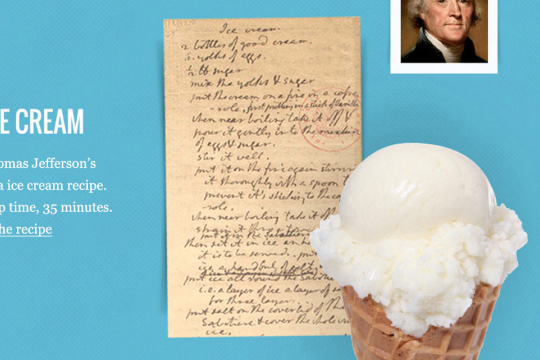 E CREAM
omas Jefferson's
a ice cream recipe.
p time, 35 minutes.
he recipe
Ice cream.
2 bottles of good cream.
6 yolks of eggs.
1/2 lb sugar
mix the yolks & sugar
put the cream on a fire in a
role, first putting in a stick of
when near boiling take it off &
pour it gently into the
of eggs & sugar.
stir it well.
put it on the fire again
it thoroughly with a spoon to
prevent it's sticking to the
role.
when near boiling take it off
then set it in ice an
it is to be served.
put ice all round the
i.e. a layer of ice a layer of
for three layers.
put salt on the coverlid of the
Sabotiere & cover the whole
ice.